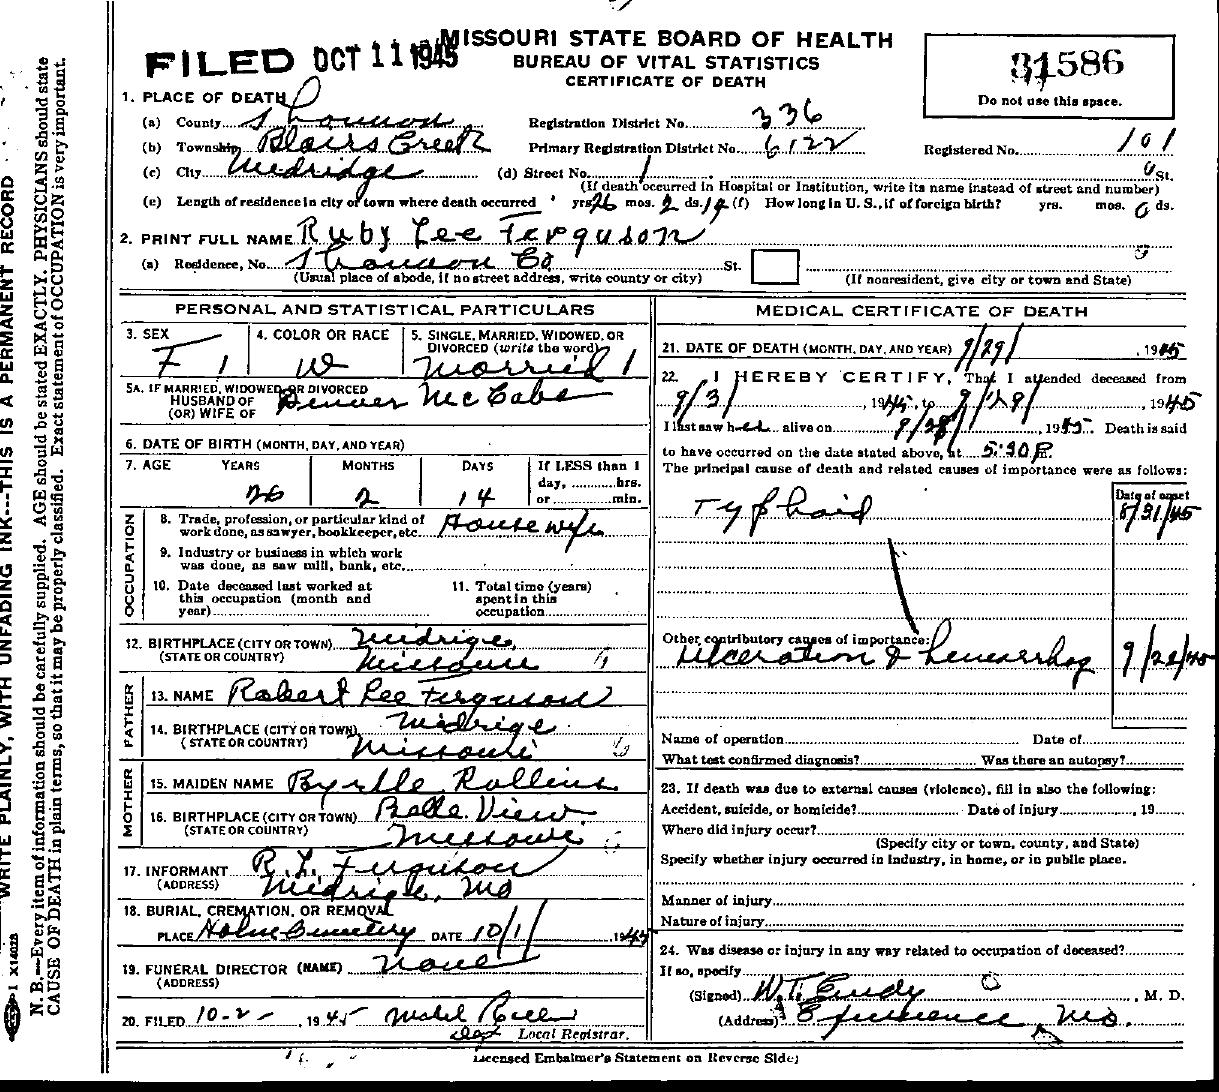 FILED OCT 11 1945
MISSOURI STATE BOARD OF HEALTH
BUREAU OF VITAL STATISTICS
CERTIFICATE OF DEATH
31586
Do not use this space.
1. PLACE OF DEATH
(a) County Shannon
Registration District No. 336
(b) Township Blairs Creek
Primary Registration District No. 6122
Registered No. 101
(c) City Midridge
(d) Street No. St.
(If death occurred in Hospital or Institution, write its name instead of street and number)
(e) Length of residence in city or town where death occurred yrs 26 mos. 2 ds. 14 (f) How long in U. S., if of foreign birth? yrs. mos. ds.
2. PRINT FULL NAME Ruby Lee Ferguson
(a) Residence, No. Shannon Co St.
(Usual place of abode, if no street address, write county or city)
(If nonresident, give city or town and State)
PERSONAL AND STATISTICAL PARTICULARS
3. SEX F
4. COLOR OR RACE W
5. SINGLE, MARRIED, WIDOWED, OR
DIVORCED (write the word)
Married
5A. IF MARRIED, WIDOWED OR DIVORCED
HUSBAND OF
(OR) WIFE OF Denver McCabe
6. DATE OF BIRTH (MONTH, DAY, AND YEAR)
7. AGE YEARS MONTHS DAYS If LESS than 1
day, hrs.
or min.
26 2 14
OCCUPATION
8. Trade, profession, or particular kind of
work done, as sawyer, bookkeeper, etc. House wife
9. Industry or business in which work
was done, as saw mill, bank, etc.
10. Date deceased last worked at
this occupation (month and
year)
11. Total time (years)
spent in this
occupation
12. BIRTHPLACE (CITY OR TOWN) Midrige,
(STATE OR COUNTRY) Missouri
FATHER
13. NAME Robert Lee Ferguson
14. BIRTHPLACE (CITY OR TOWN) Midrige
(STATE OR COUNTRY) Missouri
MOTHER
15. MAIDEN NAME Byrtle Rollins
16. BIRTHPLACE (CITY OR TOWN) Belle View
(STATE OR COUNTRY) Missouri
17. INFORMANT R. L. Ferguson
(ADDRESS) Midrige, Mo
18. BURIAL, CREMATION, OR REMOVAL
PLACE Cemetery DATE 10/1/ 1945
19. FUNERAL DIRECTOR (NAME) None
(ADDRESS)
20. FILED 10-2- , 1945
Local Registrar.
MEDICAL CERTIFICATE OF DEATH
21. DATE OF DEATH (MONTH, DAY, AND YEAR) 9/29/ , 1945
22. I HEREBY CERTIFY, That I attended deceased from
9/3/ , 1945, to 9/29/ , 1945
I last saw her alive on 9/28/ , 1945 Death is said
to have occurred on the date stated above, at 5:30 P.
The principal cause of death and related causes of importance were as follows:
Date of onset
Typhoid 8/31/45
Other contributory causes of importance:
Ulceration & hemorrhag
Name of operation Date of
What test confirmed diagnosis? Was there an autopsy?
23. If death was due to external causes (violence), fill in also the following:
Accident, suicide, or homicide? Date of injury , 19
Where did injury occur?
(Specify city or town, county, and State)
Specify whether injury occurred in industry, in home, or in public place.
Manner of injury
Nature of injury
24. Was disease or injury in any way related to occupation of deceased?
If so, specify
(Signed) W. T. Eudy , M. D.
(Address) Eminence, Mo.
Licensed Embalmer's Statement on Reverse Side
WRITE PLAINLY, WITH UNFADING INK---THIS IS A PERMANENT RECORD
N. B.—Every item of information should be carefully supplied. AGE should be stated EXACTLY. PHYSICIANS should state
CAUSE OF DEATH in plain terms, so that it may be properly classified. Exact statement of OCCUPATION is very important.
X14028